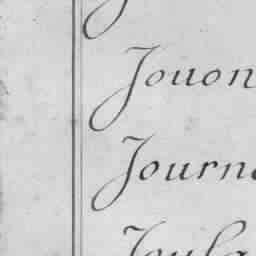 Jouon
Journ